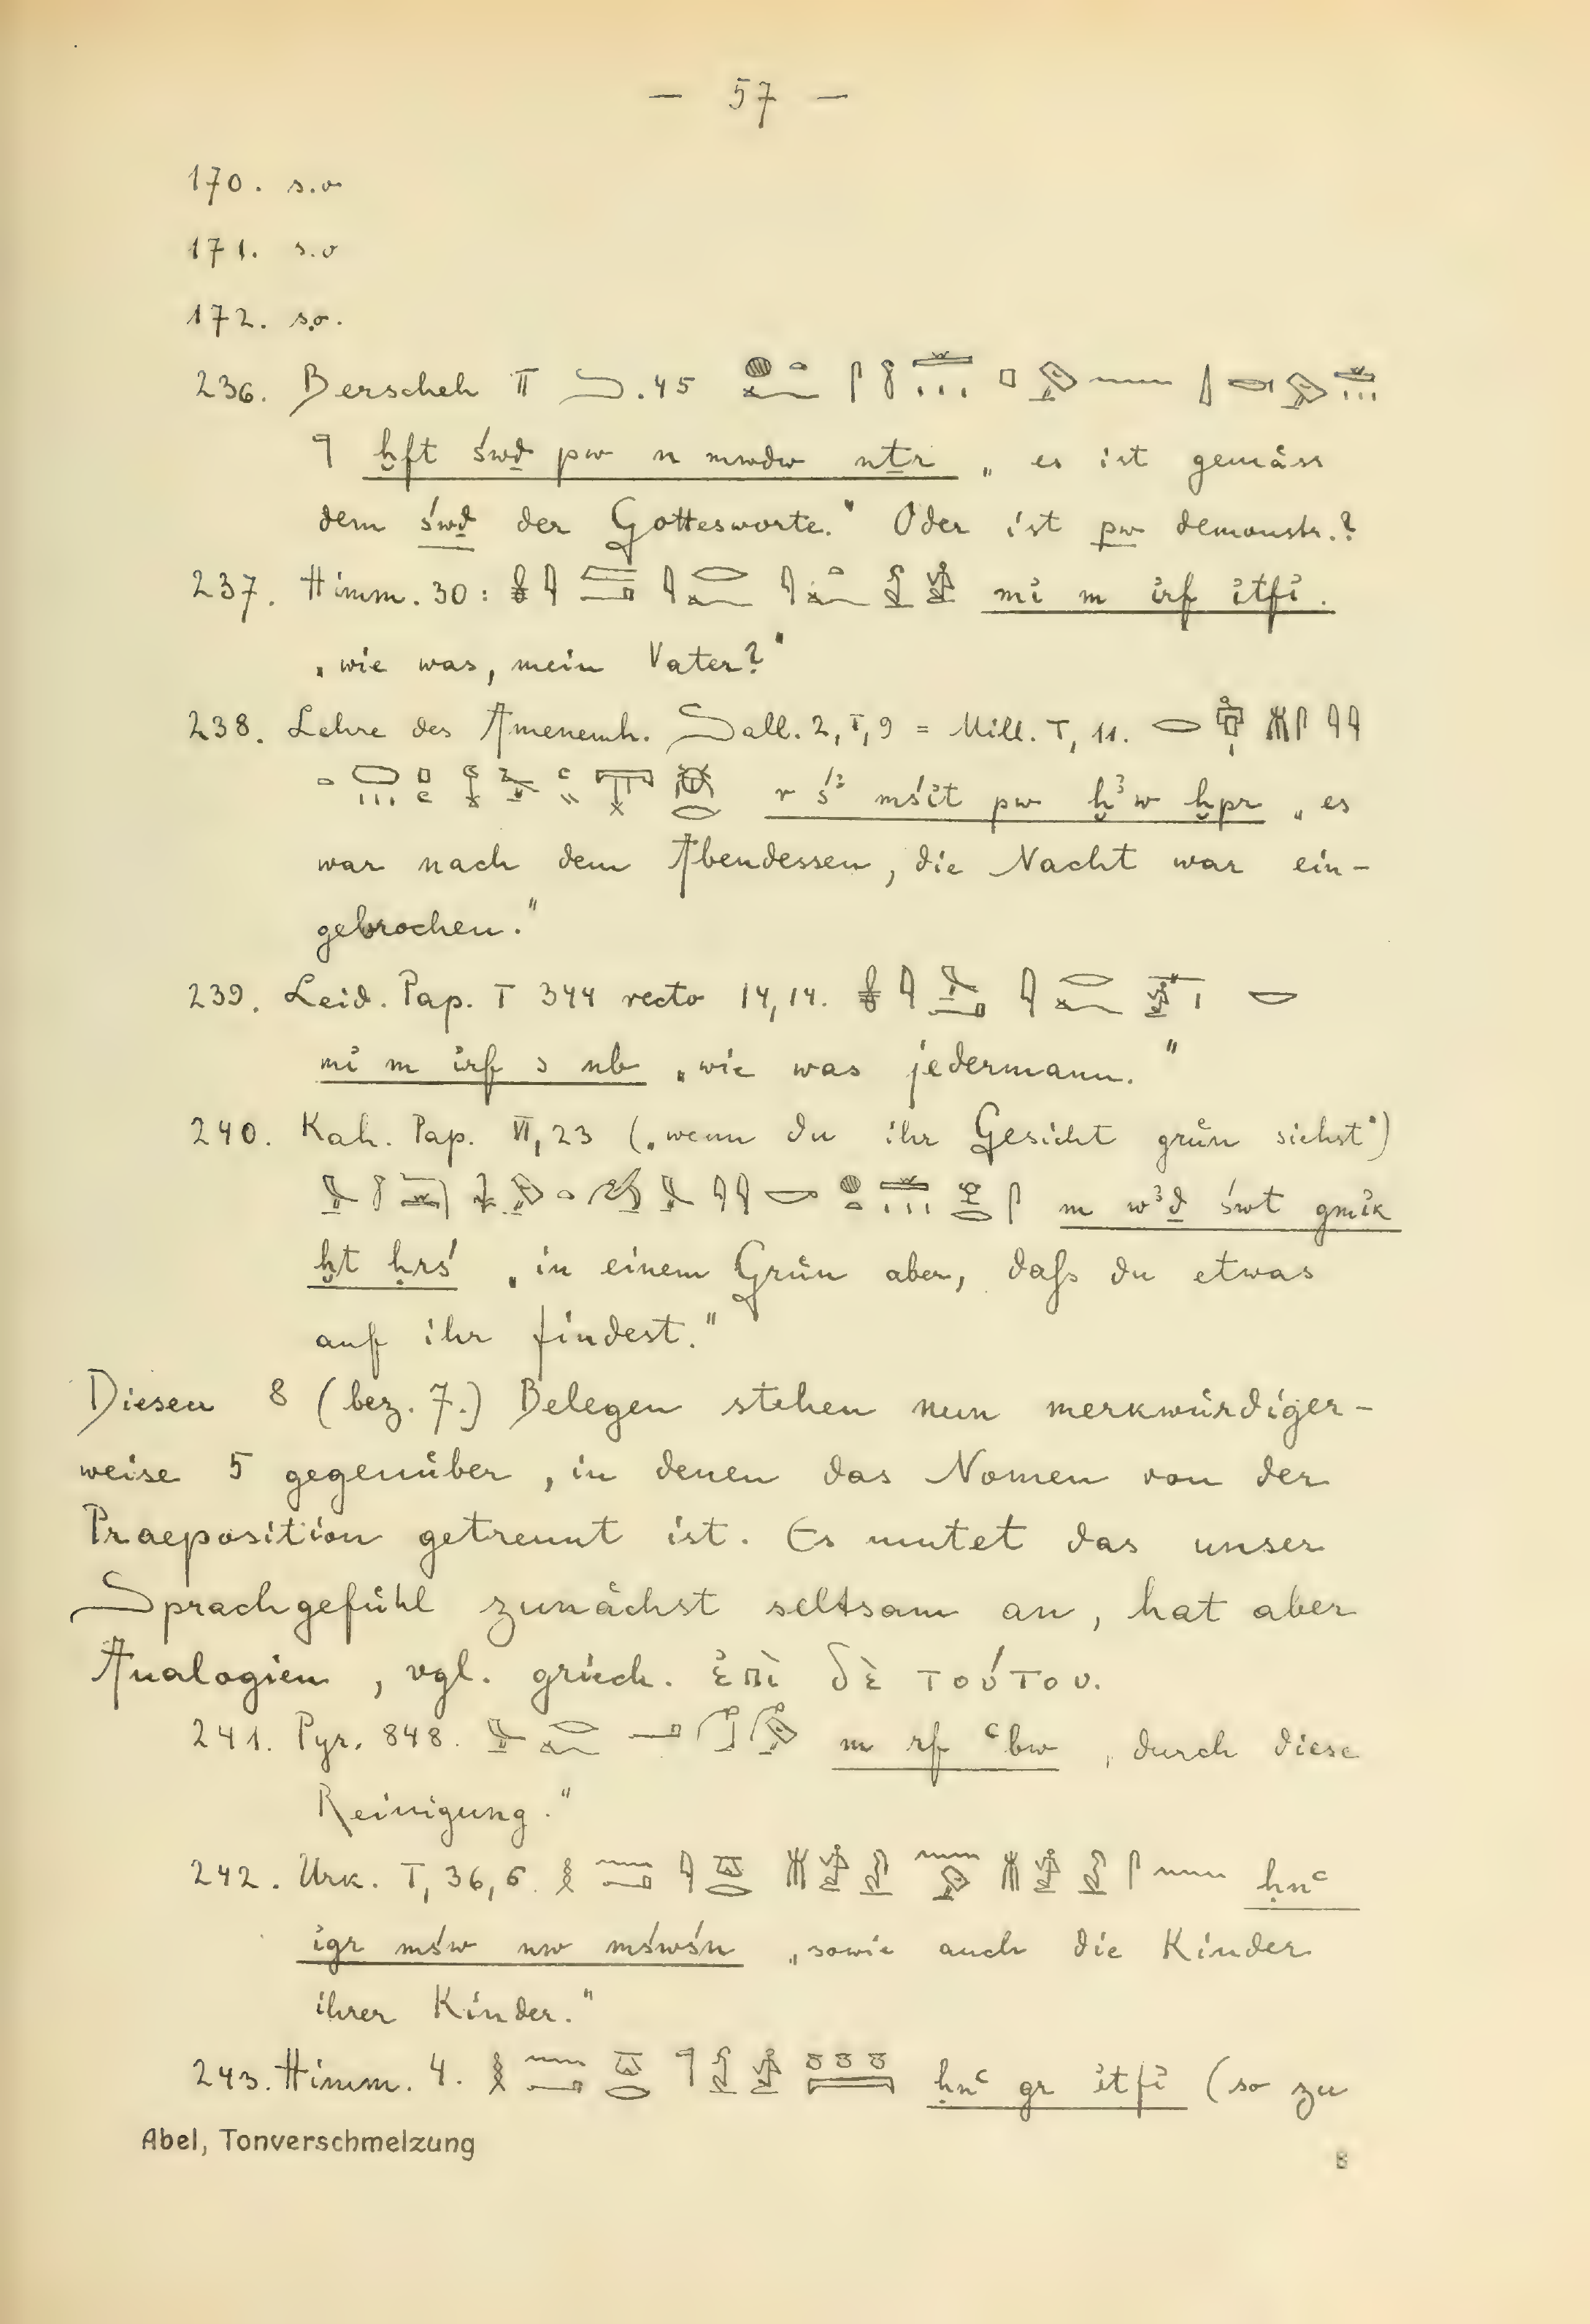 — 57 —
170. s.o
171. s.o
172. s.o.
236. Berscheh II S. 45
ḫft św̱d pw n mwdw nṯr „es ist gemäss
dem św̱d der Gottesworte." Oder ist pw demonstr.?
237. Himm. 30: mi̓ m i̓rf i̓tfi̓.
„wie was, mein Vater?"
238. Lehre des Amenemh. Sall. 2, I, 9 = Mill. I, 11.
r ś³ mśi̓t pw ḫ³w ḫpr „es
war nach dem Abendessen, die Nacht war ein-
gebrochen."
239. Leid. Pap. I 344 recto 14,14.
mi̓ m i̓rf s nb „wie was jedermann."
240. Kah. Pap. VI, 23 („wenn du ihr Gesicht grün siehst")
m w³ḏ śwt gmi̓k
ḫt ḥrś „in einem Grün aber, daſs du etwas
auf ihr findest."
Diesen 8 (bez. 7.) Belegen stehen nun merkwürdiger-
weise 5 gegenüber, in denen das Nomen von der
Praeposition getrennt ist. Es mutet das unser
Sprachgefühl zunächst seltsam an, hat aber
Analogien, vgl. griech. ἐπὶ δὲ τούτου.
241. Pyr. 848. m rf ꜥbw „durch diese
Reinigung."
242. Urk. I, 36, 6. ḥnꜥ
i̓gr mśw nw mśwśn „sowie auch die Kinder
ihrer Kinder."
243. Himm. 4. ḥnꜥ gr i̓tfi̓ (so zu
Abel, Tonverschmelzung 8